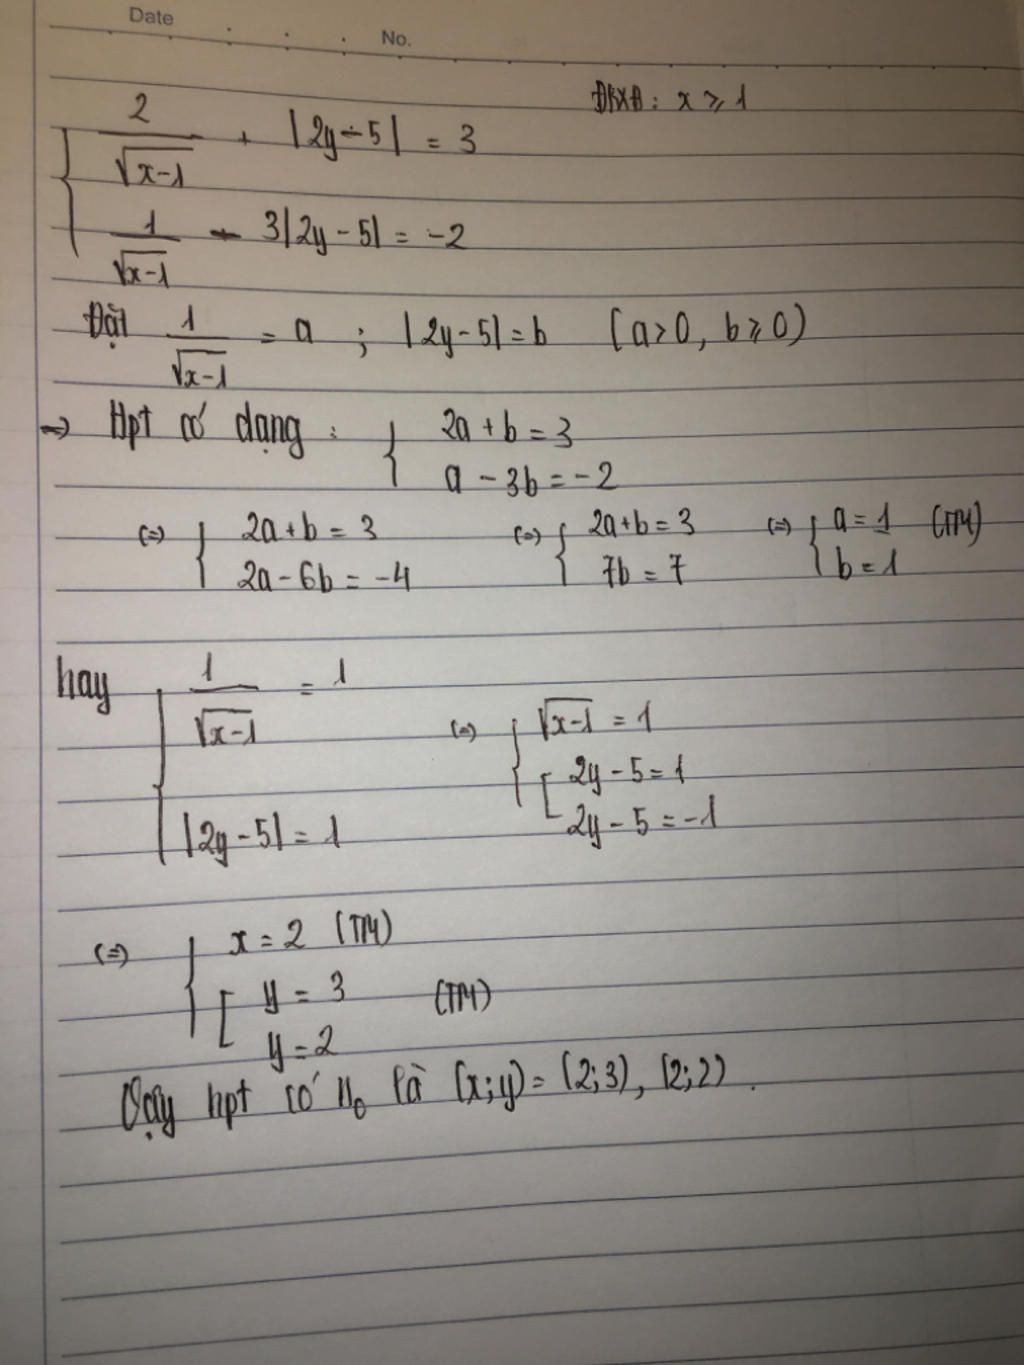 Date
No.
ĐKXĐ: x ⩾ 1
{ 2/√(x-1) + |2y-5| = 3
1/√(x-1) - 3|2y-5| = -2
Đặt 1/√(x-1) = a ; |2y-5| = b (a>0, b⩾0)
=> Hpt có dạng: { 2a+b=3
a-3b=-2
(=) { 2a+b=3 (=) { 2a+b=3 (=) { a=1 (TM)
2a-6b=-4 7b=7 b=1
hay { 1/√(x-1) = 1 (=) { √(x-1) = 1
[ 2y-5=1
|2y-5|=1 2y-5=-1
(=) { x=2 (TM)
[ y=3 (TM)
y=2
Vậy hpt có n₀ là (x;y)=(2;3), (2;2).